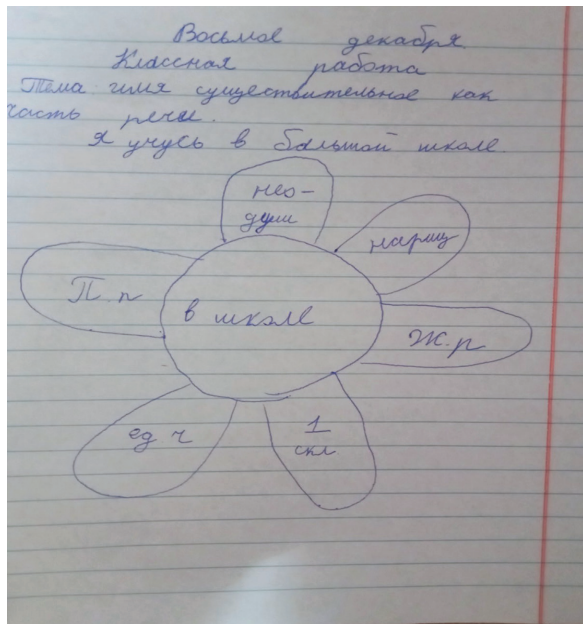 Восьмое декабря
Классная работа
Тема имя существительное как
часть речи.
Я учусь в большой школе.
нео-
душ
нариц
П.п
в школе
Ж.р
ед ч
1
скл